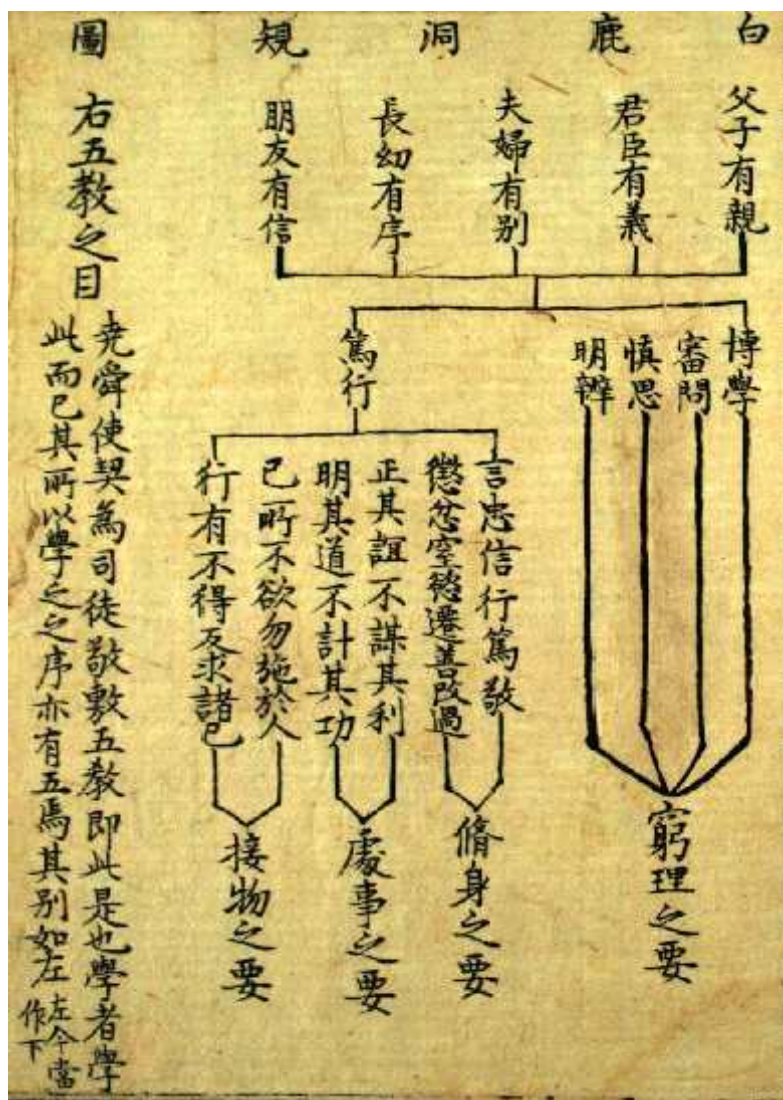 白鹿洞規圖
父子有親
君臣有義
夫婦有別
長幼有序
朋友有信
博學
審問
慎思
明辨
篤行
窮理之要
言忠信行篤敬
懲忿窒慾遷善改過
脩身之要
正其誼不謀其利
明其道不計其功
處事之要
己所不欲勿施於人
行有不得反求諸己
接物之要
右五教之目
堯舜使契為司徒敬敷五教即此是也學者學
此而已其所以學之之序亦有五焉其別如左
左今當
作下